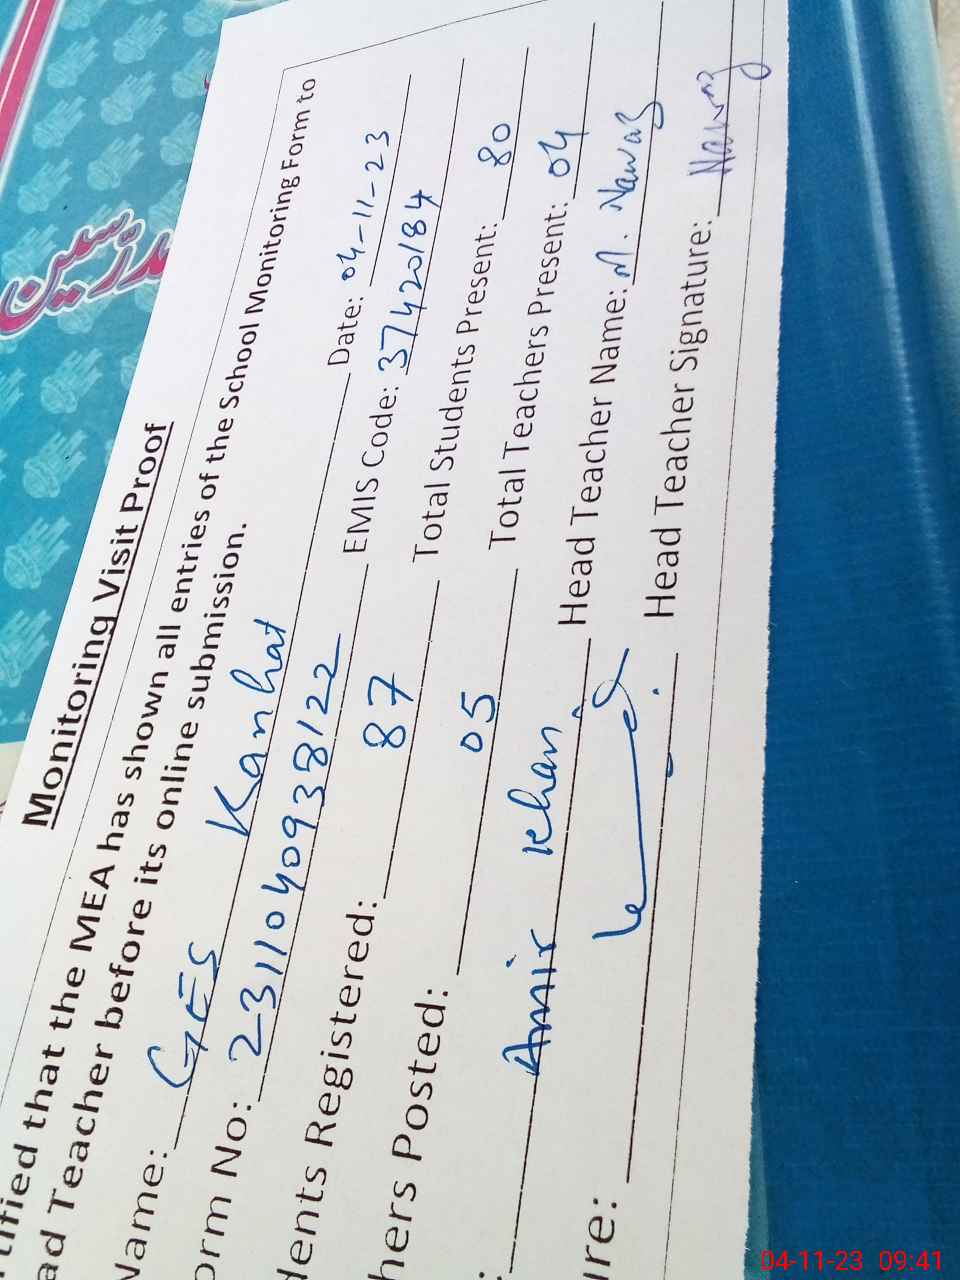 مدرسین
Monitoring Visit Proof
tified that the MEA has shown all entries of the School Monitoring Form to
ad Teacher before its online submission.
Name: GES Kanhat Date: 04-11-23
orm No: 2311040938122 EMIS Code: 37420184
dents Registered: 87 Total Students Present: 80
hers Posted: 05 Total Teachers Present: 04
: Amir Khan Head Teacher Name: M. Nawaz
ure: Head Teacher Signature: Nawaz
04-11-23 09:41